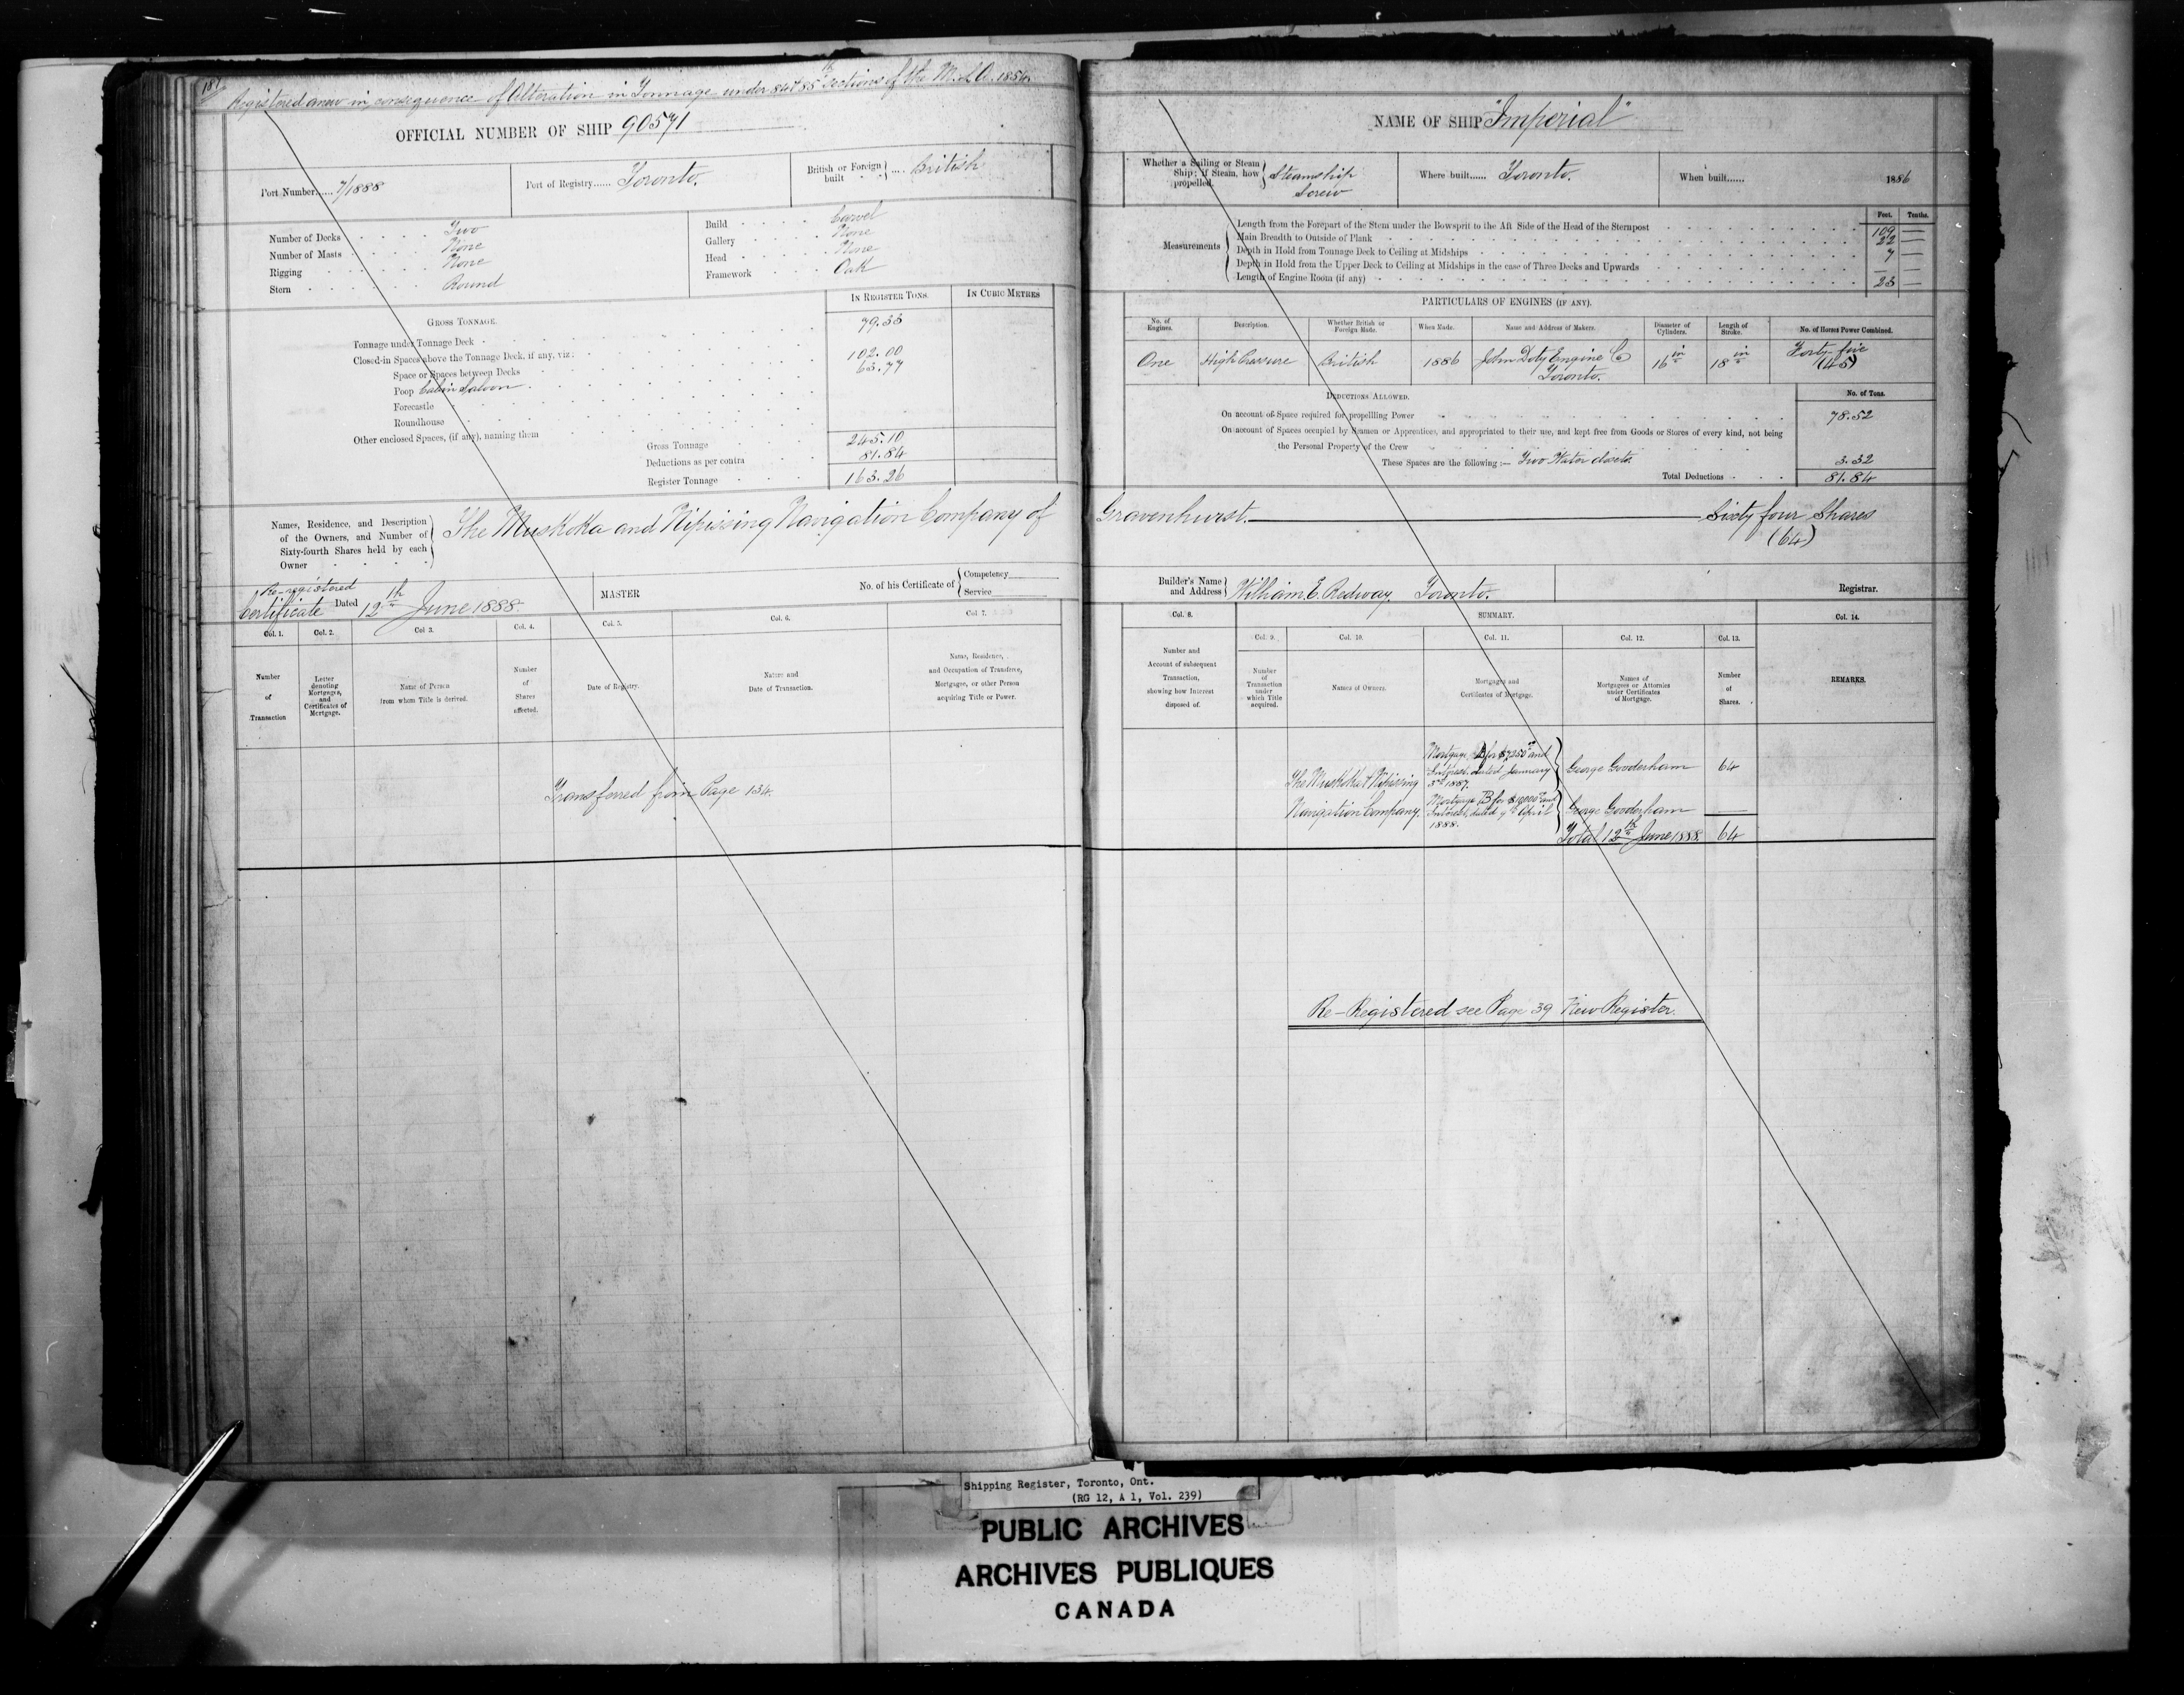 187
Registered anew in consequence of Alteration in Tonnage under 84 & 85th Sections of the M.S.A. 1854.
OFFICIAL NUMBER OF SHIP 90571
Port Number...... 7/1888
Port of Registry...... Toronto.
British or Foreign built .... British
Number of Decks Two
Number of Masts None
Rigging None
Stern Round
Build Carvel
Gallery None
Head None
Framework Oak
GROSS TONNAGE.
IN REGISTER TONS.
IN CUBIC METRES
Tonnage under Tonnage Deck 79.33
Closed-in Spaces above the Tonnage Deck, if any, viz:
Space or Spaces between Decks 102.00
Poop Cabin Saloon 63.77
Forecastle
Roundhouse
Other enclosed Spaces, (if any), naming them
Gross Tonnage 245.10
Deductions as per contra 81.84
Register Tonnage 163.26
Names, Residence, and Description of the Owners, and Number of Sixty-fourth Shares held by each Owner
The Muskoka and Nipissing Navigation Company of
Re-registered
Certificate Dated 12th June 1888.
MASTER
No. of his Certificate of Competency
Service
Col. 1. Col. 2. Col 3. Col. 4. Col. 5. Col. 6. Col. 7.
Number of Transaction
Letter denoting Mortgages, and Certificates of Mortgage.
Name of Person from whom Title is derived.
Number of Shares affected.
Date of Registry.
Nature and Date of Transaction.
Name, Residence, and Occupation of Transferee, Mortgagee, or other Person acquiring Title or Power.
Transferred from Page 134.
NAME OF SHIP "Imperial"
Whether a Sailing or Steam Ship; if Steam, how propelled. Steamship Screw
Where built...... Toronto.
When built...... 1886
Feet. Tenths.
Measurements
Length from the Forepart of the Stem under the Bowsprit to the Aft Side of the Head of the Sternpost 109 —
Main Breadth to Outside of Plank 22 —
Depth in Hold from Tonnage Deck to Ceiling at Midships 7 —
Depth in Hold from the Upper Deck to Ceiling at Midships in the case of Three Decks and Upwards — —
Length of Engine Room (if any) 23 —
PARTICULARS OF ENGINES (IF ANY).
No. of Engines.
Description.
Whether British or Foreign Made.
When Made.
Name and Address of Makers.
Diameter of Cylinders.
Length of Stroke.
No. of Horses Power Combined.
One High Pressure British 1886 John Doty Engine Co Toronto. 16 in 18 in Forty-five (45)
DEDUCTIONS ALLOWED.
No. of Tons.
On account of Space required for propelling Power 78.52
On account of Spaces occupied by Seamen or Apprentices, and appropriated to their use, and kept free from Goods or Stores of every kind, not being
the Personal Property of the Crew
These Spaces are the following:— Two Water closets. 3.32
Total Deductions 81.84
Gravenhurst. Sixty four Shares
(64)
Builder's Name and Address William E. Redway, Toronto.
Registrar.
Col. 8. SUMMARY. Col. 14.
Col. 9. Col. 10. Col. 11. Col. 12. Col. 13.
Number and Account of subsequent Transaction, showing how Interest disposed of.
Number of Transaction under which Title acquired.
Names of Owners.
Mortgages and Certificates of Mortgage.
Names of Mortgagees or Attornies under Certificates of Mortgage.
Number of Shares.
REMARKS.
The Muskoka & Nipissing Navigation Company.
Interest, dated January 3rd 1887.
George Gooderham 64
Mortgage B for $10000 and Interest, dated 9th April 1888.
George Gooderham —
Total 12th June 1888 64
Re-Registered see Page 39 New Register.
Shipping Register, Toronto, Ont.
(RG 12, A 1, Vol. 239)
PUBLIC ARCHIVES
ARCHIVES PUBLIQUES
CANADA